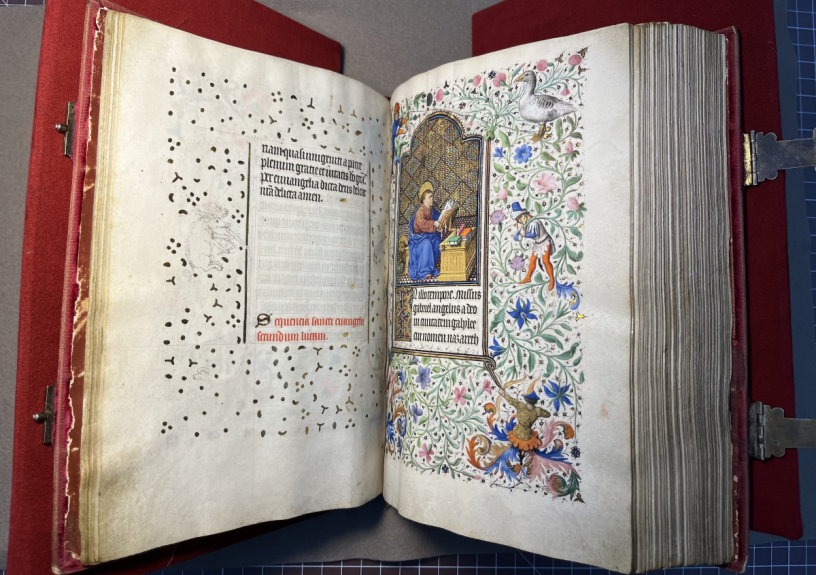 nam quasi unigeniti a patre
plenum gratie et
Per euuangelia dicta
delicta amen.
Sequencia sancti euuangelii
secundum lucam.
In illo tempore. Missus
gabriel angelus a deo
in ciuitatem galylee
cui nomen nazareth